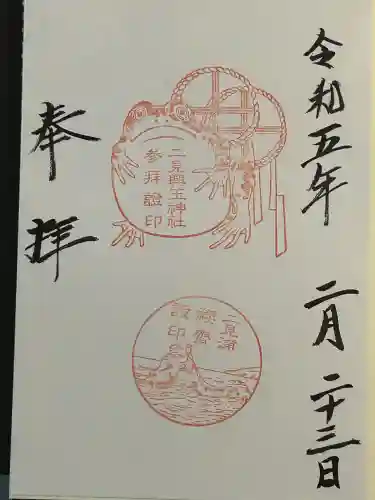 令和五年 二月二十三日
二見興玉神社
参拝證印
二見浦
禊齋
證印
奉拝